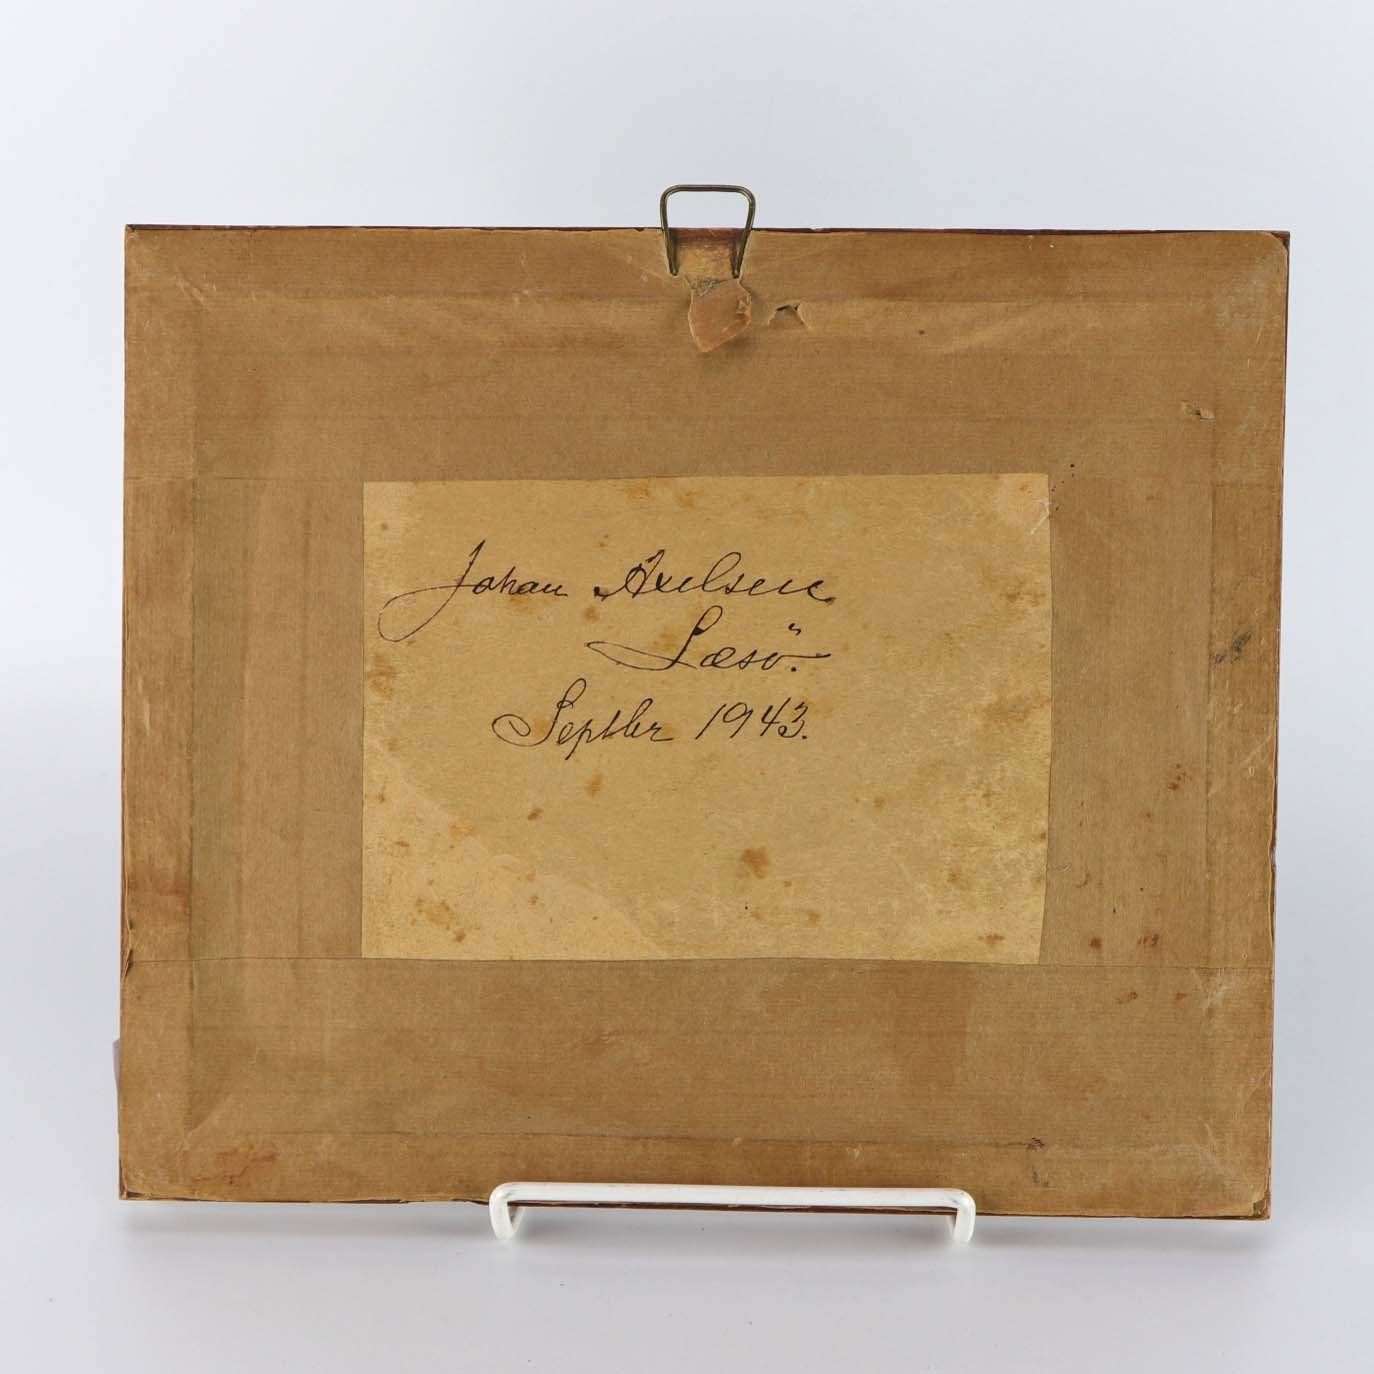 Johan Axelsen
Læsö.
Septbr 1943.